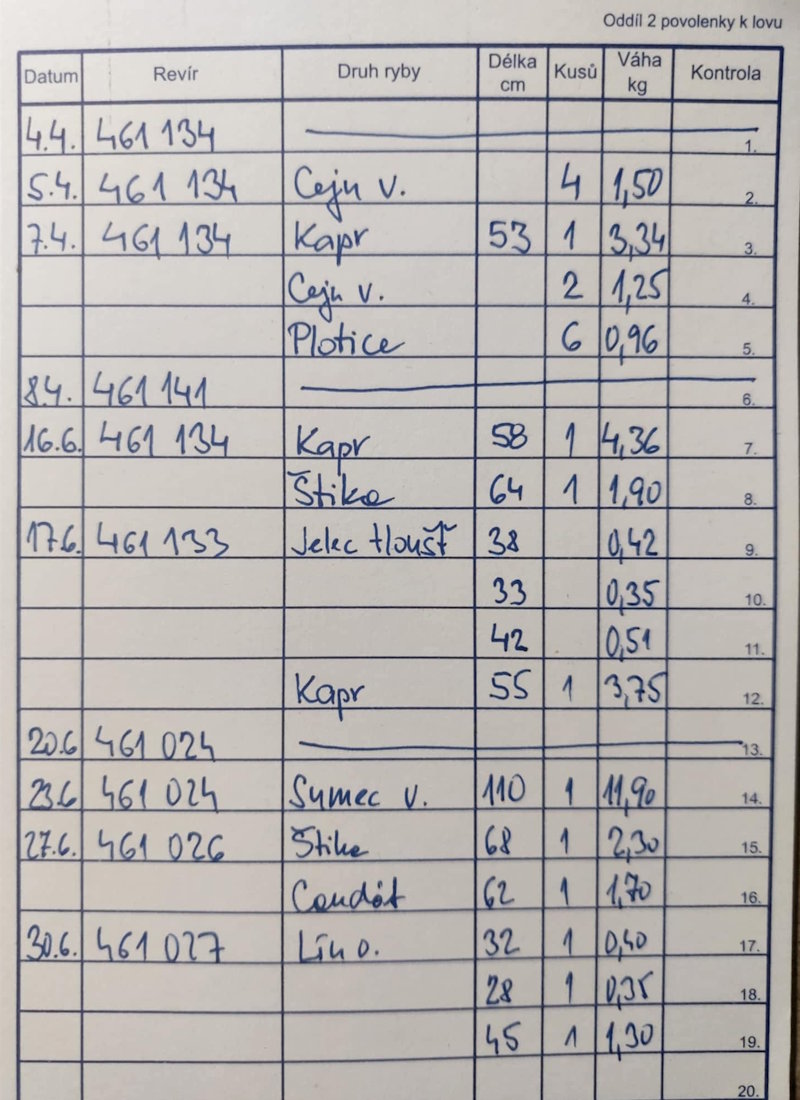 Oddíl 2 povolenky k lovu
Datum Revír Druh ryby Délka cm Kusů Váha kg Kontrola
4.4. 461 134 1.
5.4. 461 134 Cejn v. 4 1,50 2.
7.4. 461 134 Kapr 53 1 3,34 3.
Cejn v. 2 1,25 4.
Plotice 6 0,96 5.
8.4. 461 141 6.
16.6. 461 134 Kapr 58 1 4,36 7.
Štika 64 1 1,90 8.
17.6. 461 133 Jelec tloušť 38 0,42 9.
33 0,35 10.
42 0,51 11.
Kapr 55 1 3,75 12.
20.6 461 024 13.
23.6 461 024 Sumec v. 110 1 11,90 14.
27.6. 461 026 Štika 68 1 2,30 15.
Candát 62 1 1,70 16.
30.6. 461 027 Lín o. 32 1 0,40 17.
28 1 0,35 18.
45 1 1,30 19.
20.